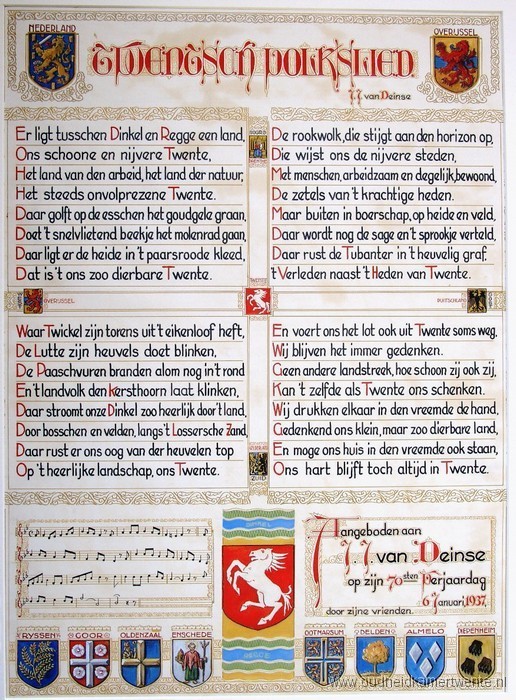 NEDERLAND
OVERIJSSEL
Twentsch Volkslied
J.J. van Deinse
Er ligt tusschen Dinkel en Regge een land,
Ons schoone en nijvere Twente,
Het land van den arbeid, het land der natuur,
Het steeds onvolprezene Twente.
Daar golft op de esschen het goudgele graan,
Doet 't snelvlietend beekje het molenrad gaan,
Daar ligt er de heide in 't paarsroode kleed,
Dat is 't ons zoo dierbare Twente.
De rookwolk, die stijgt aan den horizon op,
Die wijst ons de nijvere steden,
Met menschen, arbeidzaam en degelijk, bewoond,
De zetels van 't krachtige heden.
Maar buiten in boerschap, op heide en veld,
Daar wordt nog de sage en 't sprookje verteld,
Daar rust de Tubanter in 't heuvelig graf,
't Verleden naast 't Heden van Twente.
OVERIJSSEL
Waar Twickel zijn torens uit 't eikenloof heft,
De Lutte zijn heuvels doet blinken,
De Paaschvuren branden alom nog in 't rond
En 't landvolk den kersthoorn laat klinken,
Daar stroomt onze Dinkel zoo heerlijk door 't land,
Door bosschen en velden, langs 't Lossersche Zand,
Daar rust er ons oog van der heuvelen top
Op 't heerlijke landschap, ons Twente.
En voert ons het lot ook uit Twente soms weg,
Wij blijven het immer gedenken.
Geen andere landstreek, hoe schoon zij ook zij,
Kan 't zelfde als Twente ons schenken.
Wij drukken elkaar in den vreemde de hand,
Gedenkend ons klein, maar zoo dierbare land,
En moge ons huis in den vreemde ook staan,
Ons hart blijft toch altijd in Twente.
Aangeboden aan
J.J. van Deinse
op zijn 70sten Verjaardag
6 Januari 1937,
door zijne vrienden.
RYSSEN
GOOR
OLDENZAAL
ENSCHEDE
OOTMARSUM
DELDEN
ALMELO
DIEPENHEIM
www.oudheidkamertwente.nl